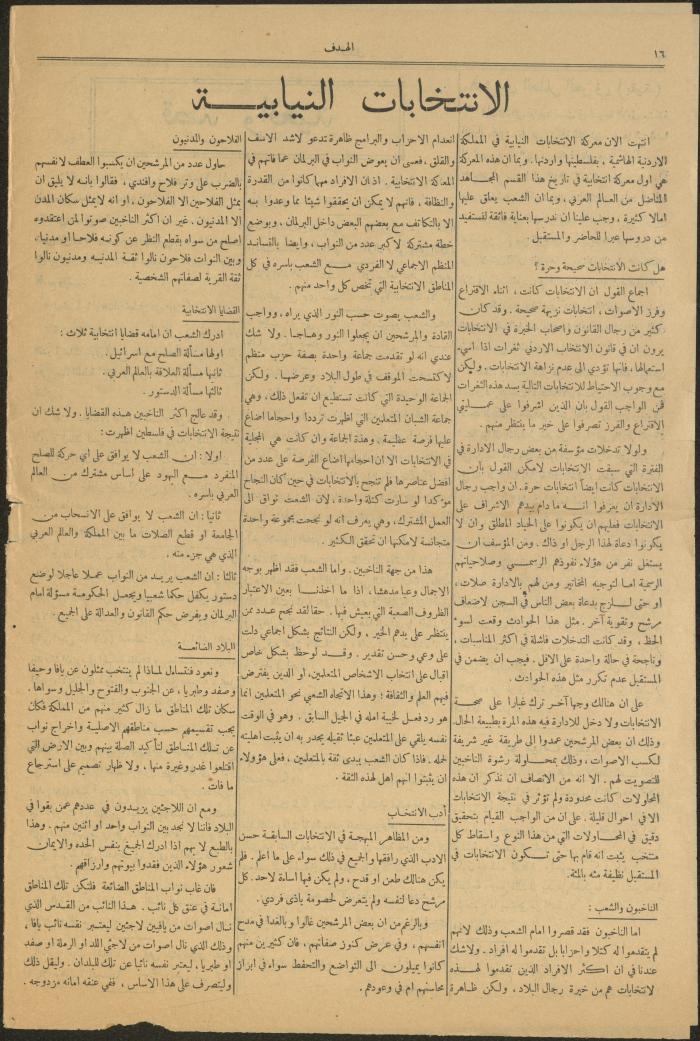 ١٦
الهدف
الانتخابات النيابية
انتهت الان معركة الانتخابات النيابية في المملكة
الاردنية الهاشمية ، بفلسطينها واردنها . وبما ان هذه المعركة
هي اول معركة انتخابية في تاريخ هذا القسم المجاهد
المناضل من العالم العربي ، وبما ان الشعب يعلق عليها
امالا كثيرة ، وجب علينا ان ندرسها بعناية فائقة لنستفيد
من دروسها عبرا للحاضر والمستقبل .
هل كانت الانتخابات صحيحة وحرة ؟
اجماع القول ان الانتخابات كانت ، اثناء الاقتراع
وفرز الاصوات ، انتخابات نزيهة صحيحة . وقد كان
كثير من رجال القانون واصحاب الخبرة في الانتخابات
يرون ان في قانون الانتخاب الاردني ثغرات اذا اسيء
استعمالها . فانها تؤدي الى عدم نزاهة الانتخابات . ولكن
مع وجوب الاحتياط للانتخابات التالية بسد هذه الثغرات
فمن الواجب القول بان الذين اشرفوا على عمليتي
الاقتراع والفرز تصرفوا على خير ما ينتظر منهم .
ولولا تدخلات مؤسفة من بعض رجال الادارة في
الفترة التي سبقت الانتخابات لامكن القول بان
الانتخابات كانت ايضا انتخابات حرة . ان واجب رجال
الادارة ان يعرفوا انه ما دام بيدهم الاشراف على
الانتخابات فعليهم ان يكونوا على الحياد المطلق وان لا
يكونوا دعاة لهذا الرجل او ذاك . ومن المؤسف ان
يستغل نفر من هؤلاء نفوذهم الرسمي وصلاحياتهم
الرسمية اما لتوجيه المخاتير ومن لهم بالادارة صلات ،
او حتى للزج بدعاة بعض الناس في السجن لاضعاف
مرشح وتقوية آخر . مثل هذا الحوادث وقعت لسوء
الحظ ، وقد كانت التدخلات فاشلة في اكثر المناسبات ،
وناجحة في حالة واحدة على الاقل . فيجب ان يضمن في
المستقبل عدم تكرر مثل هذه الحوادث .
على ان هنالك وجها آخر ترك غبارا على صحة
الانتخابات ولا دخل للادارة فيه هذه المرة بطبيعة الحال .
وذلك ان بعض المرشحين عمدوا الى طريقة غير شريفة
لكسب الاصوات ، وذلك بمحاولة رشوة الناخبين
للتصويت لهم . الا انه من الانصاف ان نذكر ان هذه
المحاولات كانت محدودة ولم تؤثر في نتيجة الانتخابات
الا في احوال قليلة . على ان من الواجب القيام بتحقيق
دقيق في المحاولات التي من هذا النوع واسقاط كل
منتخب يثبت انه قام بها حتى تكون الانتخابات في
المستقبل نظيفة مئه بالمئة .
الناخبون والشعب :
اما الناخبون فقد قصروا امام الشعب وذلك لانهم
لم يتقدموا له كتلا واحزابا بل تقدموا له افراد . ولاشك
عندنا في ان اكثر الافراد الذين تقدموا لهذه
لانتخابات هم من خيرة رجال البلاد ، ولكن ظاهرة
انعدام الاحزاب والبرامج ظاهرة تدعو لاشد الاسف
والقلق ، فعسى ان يعوض النواب في البرلمان عما فاتهم في
المعركة الانتخابية . اذ ان الافراد مهما كانوا من القدرة
والنظافة ، فانهم لا يمكن ان يحققوا شيئا مما وعدوا به
الا بالتكاتف مع بعضهم البعض داخل البرلمان ، وبوضع
خطة مشتركة لاكبر عدد من النواب ، وايضا بالتساند
المنظم الاجماعي لا الفردي مع الشعب باسره في كل
المناطق الانتخابية التي تخص كل واحد منهم .
والشعب يصوت حسب النور الذي يراه ، وواجب
القادة والمرشحين ان يجعلوا النور وهاجا . ولا شك
عندي انه لو تقدمت جماعة واحدة بصفة حزب منظم
لاكتسحت الموقف في طول البلاد وعرضها . ولكن
الجماعة الوحيدة التي كانت تستطيع ان تفعل ذلك ، وهي
جماعة الشبان المتعلمين التي اظهرت ترددا واحجاما اضاع
عليها فرصة عظيمة ، وهذه الجماعة وان كانت هي المجلية
في الانتخابات الا ان احجامها اضاع الفرصة على عدد من
افضل عناصرها فلم تنجح بالانتخابات في حين كان النجاح
مؤكدا لو سارت كتلة واحدة ، لان الشعب تواق الى
العمل المشترك ، وهي يعرف انه لو نجحت مجموعه واحدة
متجانسة لامكنها ان تحقق الكثير .
هذا من جهة الناخبين . واما الشعب فقد اظهر بوجه
الاجمال وعيا مدهشا ، اذا ما اخذنا بعين الاعتبار
الظروف الصعبة التي يعيش فيها . حقا لقد نجح عدد ممن
ينتظر على يدهم الخير ، ولكن النتائج بشكل اجماعي دلت
على وعي وحسن تقدير . وقد لوحظ بشكل خاص
اقبال على انتخاب الاشخاص المتعلمين ، او الذين يفترض
فيهم العلم والثقافة ؛ وهذا الاتجاه الشعبي نحو المتعلمين انما
هو رد فعل لخيبة امله في الجيل السابق . وهو في الوقت
نفسه يلقي على المتعلمين عبئا ثقيلا يجدر به ان يثبت اهليته
لحمله . فاذا كان الشعب يبدى ثقة بالمتعلمين ، فعلى هؤولاء
ان يثبتوا انهم اهل لهذه الثقة .
أدب الانتخاب
ومن المظاهر المبهجة في الانتخابات السابقة حسن
الادب الذي رافقها والجميع في ذلك سواء على ما اعلم . فلم
يكن هنالك طعن او قدح ، ولم يكن فيها اساءة لاحد . كل
مرشح دعا لنفسه ولم يتعرض لخصومة باذى فردي .
وبالرغم من ان بعض المرشحين غالوا وبالغدا في مدح
انفسهم ، وفي عرض كنوز صفاتهم ، فان كثيرين منهم
كانوا يميلون الى التواضع والتحفظ سواء في ابراز
محاسنهم ام في وعودهم .
الفلاحون والمدنيون
حاول عدد من المرشحين ان يكسبوا العطف لانفسهم
بالضرب على وتر فلاح وافندي ، فقالوا بانه لا يليق ان
يمثل الفلاحين الا الفلاحون ، او انه لايمثل سكان المدن
الا المدنيون . غير ان اكثر الناخبين صوتوا لمن اعتقدوه
اصلح من سواه بقطع النظر عن كونه فلاحا او مدنيا ،
وبين النواب فلاحون نالوا ثقة المدنيه ومدنيون نالوا
ثقة القرية لصفاتهم الشخصية .
القضايا الانتخابية
ادرك الشعب ان امامه قضايا انتخابية ثلاث :
اولها مسألة الصلح مع اسرائيل .
ثانيها العلاقة بالعالم العربي .
ثالثها مسألة الدستور .
وقد عالج اكثر الناخبين هذه القضايا . ولا شك ان
نتيجة الانتخابات في فلسطين اظهرت :
اولا : ان الشعب لا يوافق على اي حركة للصلح
المنفرد مع اليهود على اساس مشترك من العالم
العربي باسره .
ثانيا : ان الشعب لا يوافق على الانسحاب من
الجامعة او قطع الصلات ما بين المملكة والعالم العربي
الذي هي جزء منه .
ثالثا : ان الشعب يريد من النواب عملا عاجلا لوضع
دستور يكفل حكما شعبيا ويجعل الحكومة مسؤلة امام
البرلمان ويفرض حكم القانون والعدالة على الجميع .
البلاد الضائعة
ونعود فنتساءل لماذا لم ينتخب ممثلون عن يافا وحيفا
وصفد وطبريا ، عن الجنوب والفتوح والجليل وسواها .
سكان تلك المناطق ما زال كثير منهم من المملكة فكان
يجب تقسيمهم حسب مناطقهم الاصلية واخراج نواب
عن تلك المناطق لتأكيد الصلة بينهم وبين الارض التي
اقتلعوا غدر وغيرة منها ، ولا ظهار تصميم على استرجاع
ما فات .
ومع ان اللاجئين يزيدون في عددهم عمن بقوا في
البلاد فاننا لا نجد بين النواب واحد او اثنين منهم . وهذا
بالطبع لا يهم اذا ادرك الجميع بنفس الحده والايمان
شعور هؤلاء الذين فقدوا بيوتهم وارزاقهم .
فان غاب نواب المناطق الضائعة فلتكن تلك المناطق
امانة في عنق كل نائب . هذا النائب من القدس الذي
نال اصوات من يافيين لاجئين ليعتبر نفسه نائب يافا ،
وذلك الذي نال اصوات من لاجئي اللد او الرملة او صفد
او طبريا ، ليعتبر نفسه نائبا عن تلك للبدان . وليقل ذلك
وليتصرف على هذا الاساس ، ففي عنقه امانه مزدوجه .